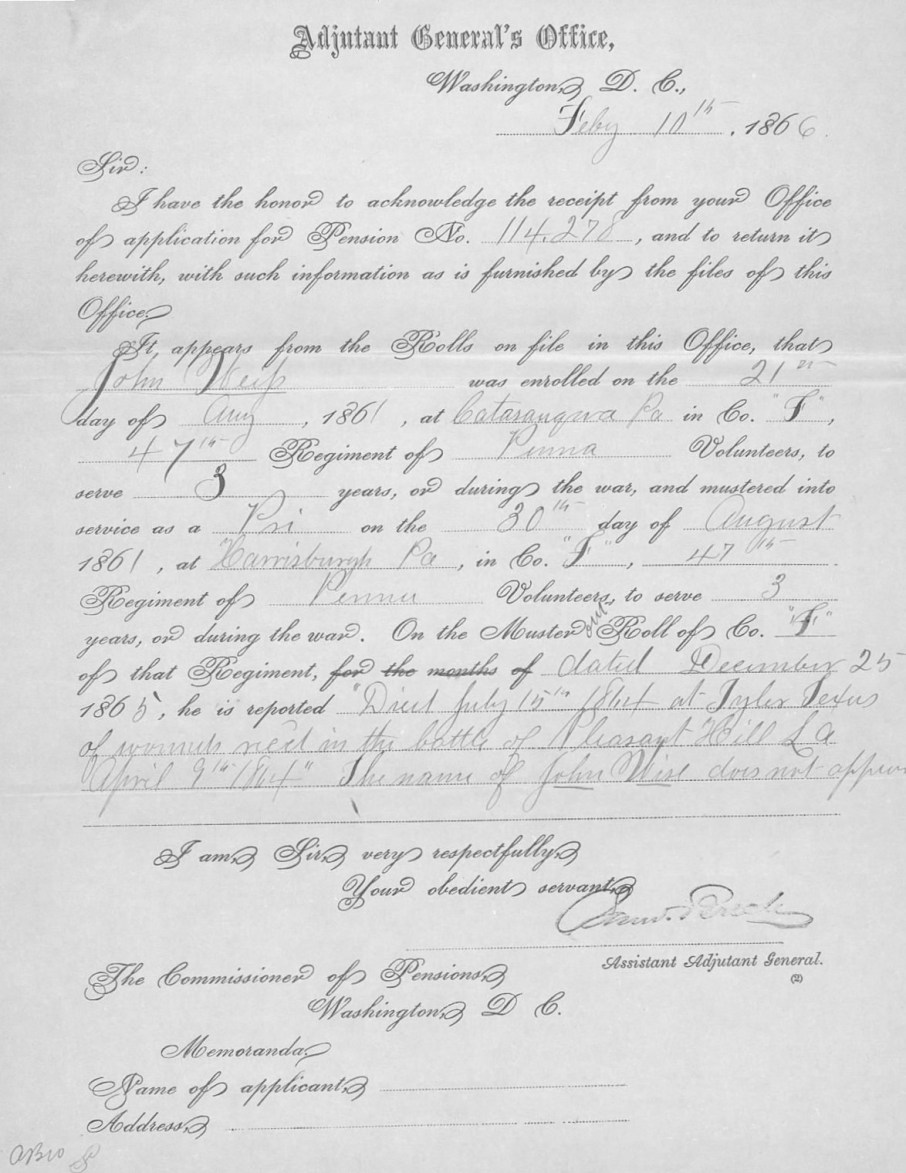 Adjutant General's Office,
Washington, D. C.,
Feby 10th, 1866.
Sir:
I have the honor to acknowledge the receipt from your Office
of application for Pension No. 114.278, and to return it
herewith, with such information as is furnished by the files of this
Office.
It appears from the Rolls on file in this Office, that
John Weiss was enrolled on the 21st
day of Aug, 1861, at Catasauqua Pa in Co. "F",
47th Regiment of Penna Volunteers, to
serve 3 years, or during the war, and mustered into
service as a Pri on the 30th day of August
1861, at Harrisburgh Pa, in Co. "F", 47th
Regiment of Penna Volunteers, to serve 3
years, or during the war. On the Muster out Roll of Co. "F"
of that Regiment, for the months of dated December 25
1865, he is reported "Died July 15th 1864 at Tyler Texas
of wounds recd in the battle of Pleasant Hill La
April 9th 1864" The name of John Wise does not appear
I am, Sir, very respectfully,
Your obedient servant,
Saml. Breck
Assistant Adjutant General.
(2)
The Commissioner of Pensions,
Washington, D C.
Memoranda,
Name of applicant,
Address,